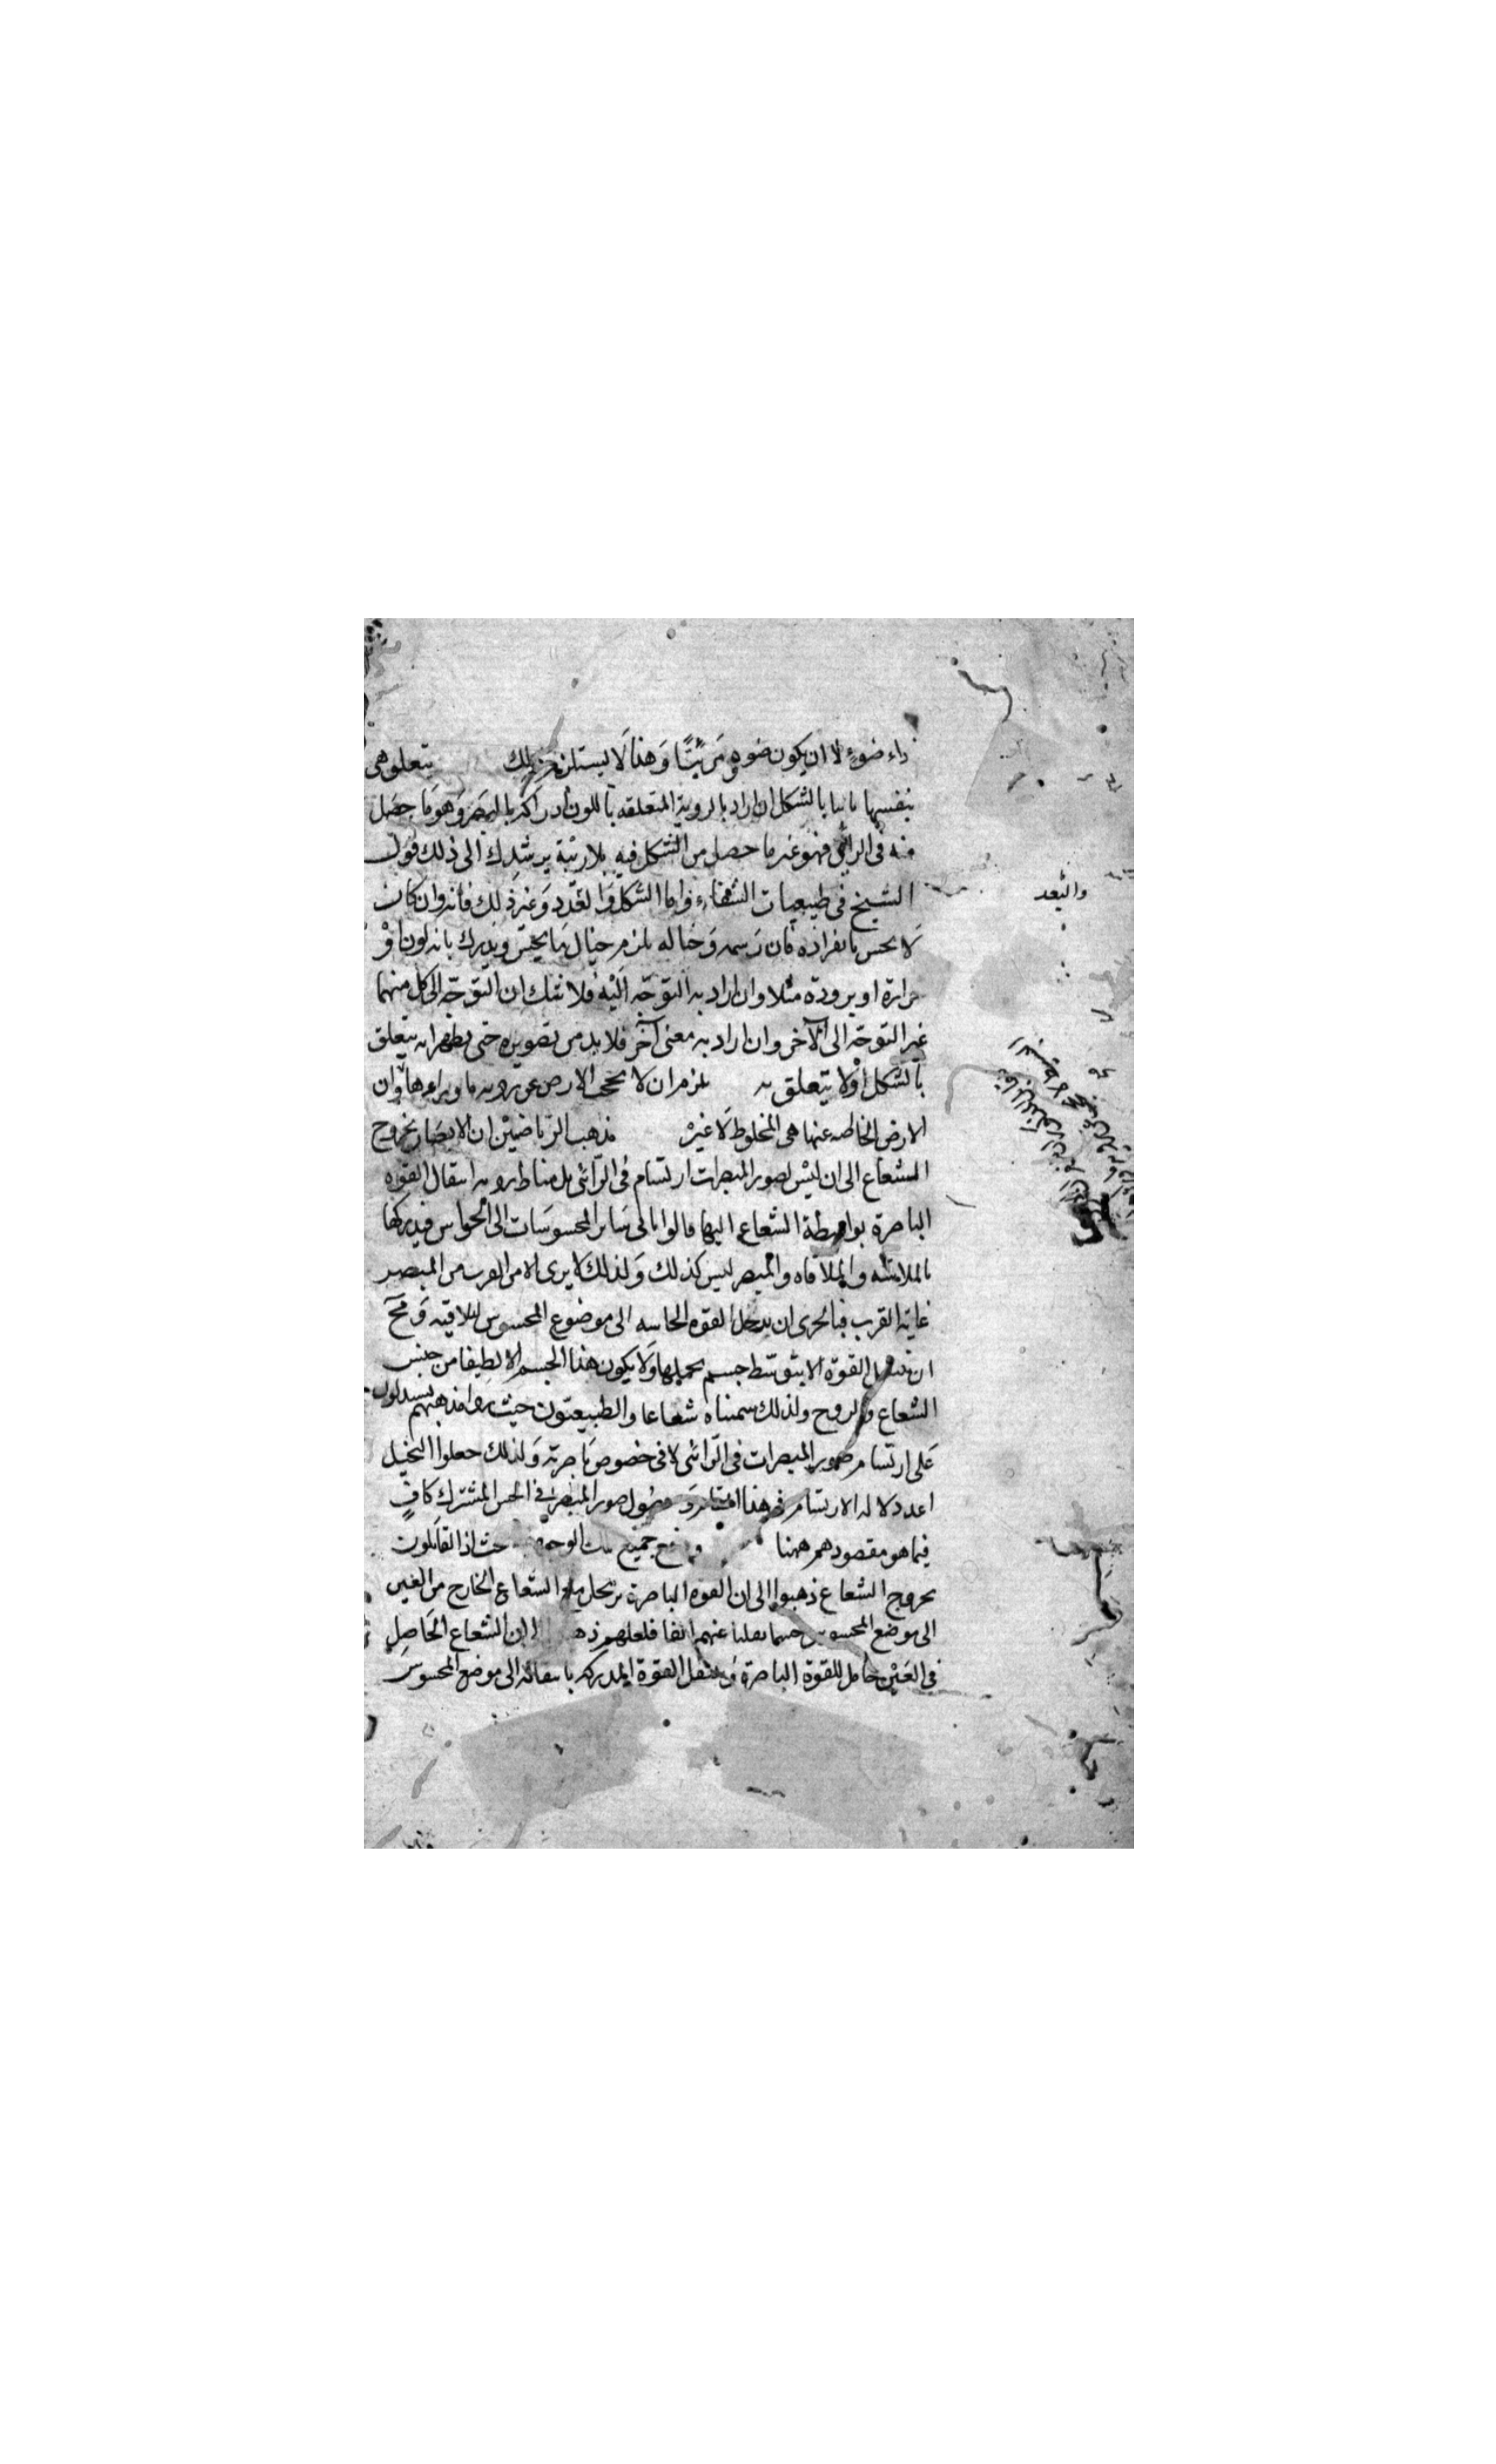 ذاء ضوء لا ان يكون ضوءه مرئيًّا وَهذا لَا يستلزم ذلك يتعلق هى
بنفسها ثانيا بالشكل ان اراد بالروية المتعلقه باللون ادراكه بالبصر وَهو مَا حصَل
منه فى الرائى فهو غير ما حصل من الشكل فيه بلا ريْبة يرشدك الى ذلك قول
الشيخ فى طبيعيات الشفاء واما الشكل وَالعَدد وَغير ذلك فانه وان كان
لَا يحس بانفراده فان رَسمه وَخياله يلزم خيال مَا يحسّ ويدرك بانه لون اوْ
حرارة او برودة مثلا وان اراد به التوجّه اليْه فلا شك ان التوجّه الى كل منهما
غير التوجّه الى الآخر وان اراد به معنى آخر فلا بد من تصويره حتى يظهر انه يتعلق
بالشكل اوْلا يتعلق به يلزم ان لا يحجب الارض عن روية ما وراءها وان
الارض الخالصه عنها هى المخلوط لَا غيْر مذهب الرّياضيّيْن ان الابصَار بخروج
الشعاع الى ان ليْس لصور المبصرات ارتسام فى الرّائى بل مناط رويته انتقال القوه
الباصرة بواسطة الشعاع اليها قالوا باقى سَائر المحسوسَات الى الحواس فيدركها
بالملامسه والملاقاه والمبصر ليس كذلك وَلذلك لا يرى الامر القريب من المبصر
غايه القرب فبالحرى ان يدخل القوه الحاسه الى موضوع المحسوس لتلاقيه وَمح
ان تنتقل القوّة الا بتوسّط جسم يحملها وَلَا يكون هذا الجسم الا لطيفا من جنس
الشعاع والروح ولذلك سميناه شعاعا والطبيعيّون حيث بنوا مذهبهم يستدلون
عَلى ارتسام صور المبصرات فى الرّائى لا فى خصوص باصرته وَلذلك جعلوا التخيل
اعدد دلالة الارتسام فى هذا المقام وَ حصول صور المبصر فى الحس المشترك كافٍ
فيما هو مقصودهم ههنا جميع تلك الوجوه بحث اذ القائلون
بخروج الشعاع ذهبوا الى ان القوه الباصرة يرتحل مع الشعاع الخارج من العين
الى موضع المحسوس حسبما نقلنا عنهم انفا فلعلهم ذهبوا الى ان الشعاع الحَاصل
فى العَيْن حَامل للقوة الباصرة وينتقل القوة المدركة بانتقاله الى موضع المحسوسَ
والبُعد